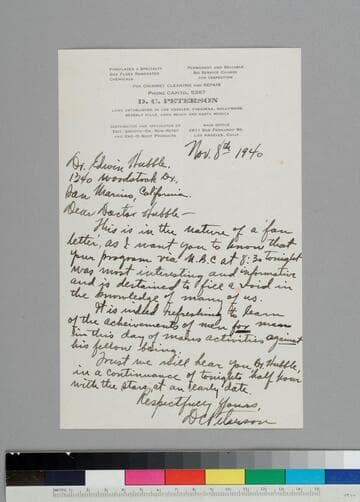 Fireplaces a Specialty
Gas Flues Renovated
Chemicals
Permanent and Reliable
No Service Charge
for Inspection
For Chimney Cleaning and Repair
Phone Capitol 5267
D. C. PETERSON
Long Established in Los Angeles, Pasadena, Hollywood,
Beverly Hills, Long Beach and Santa Monica
Distributor and Specialist of
and
Main Office
2811 San Fernando Rd.
Los Angeles, Calif.
Nov. 8th 1940
Dr. Edwin Hubble.
1340 Woodstock Dr,
San Marino, California.
Dear Doctor Hubble—
This is in the nature of a fan
letter, as I want you to know that
your program via N.B.C at 8:30 tonight
was most interesting and informative
and is destained to fill a void in
the knowledge of many of us.
It is indeed refreshing to learn
of the acheivements of men for man
in this day of mans activities against
his fellow being.
Trust we will hear you Dr. Hubble,
in a continuance of tonights half hour
with the stars, at an early date.
Respectfully Yours,
D C Peterson